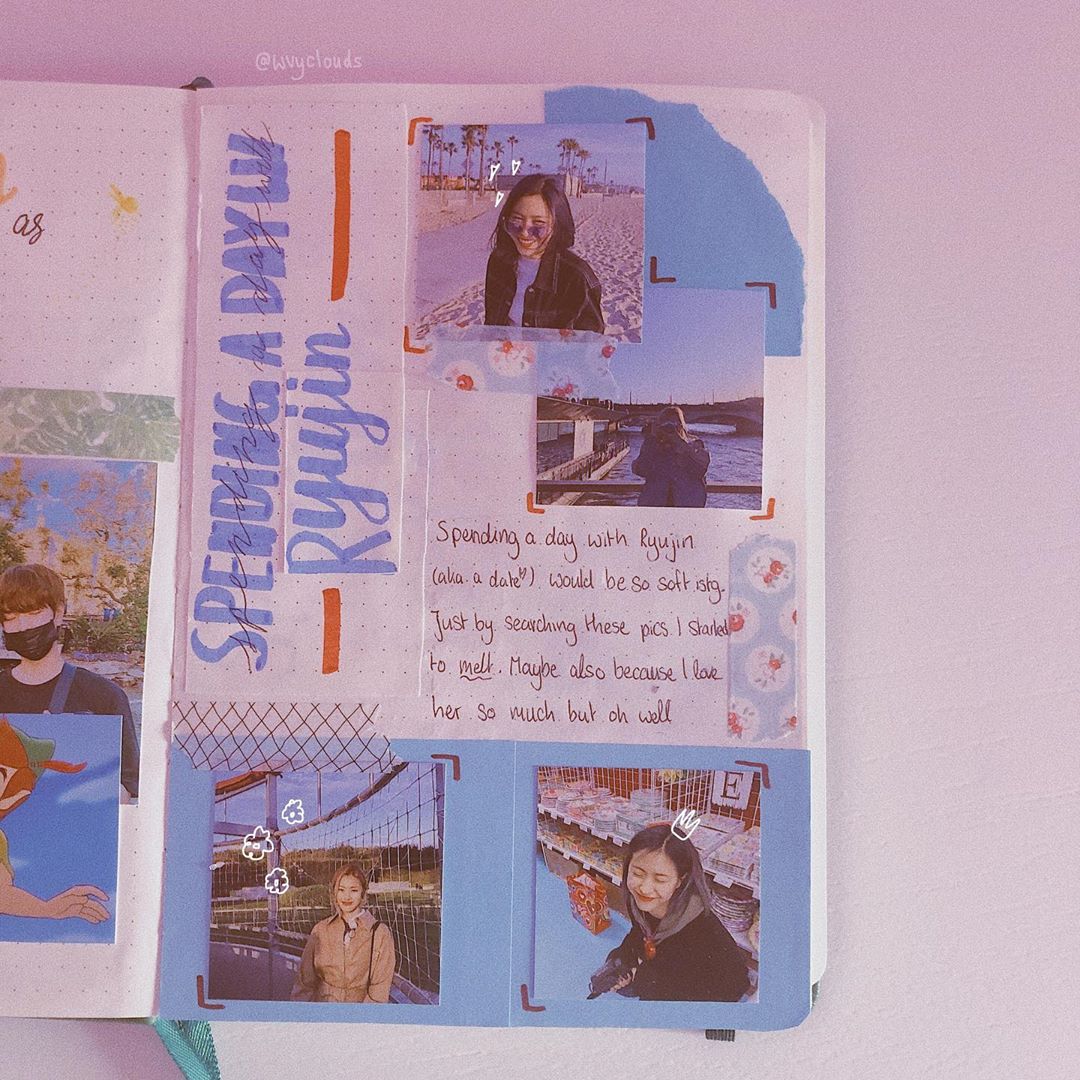 @wvyclouds
as
SPENDING A DAY W
spending a day with
Ryujin
Spending a day with Ryujin
(aka a date♡) would be so soft istg.
Just by searching these pics I started
to melt. Maybe also because I love
her so much but oh well
E